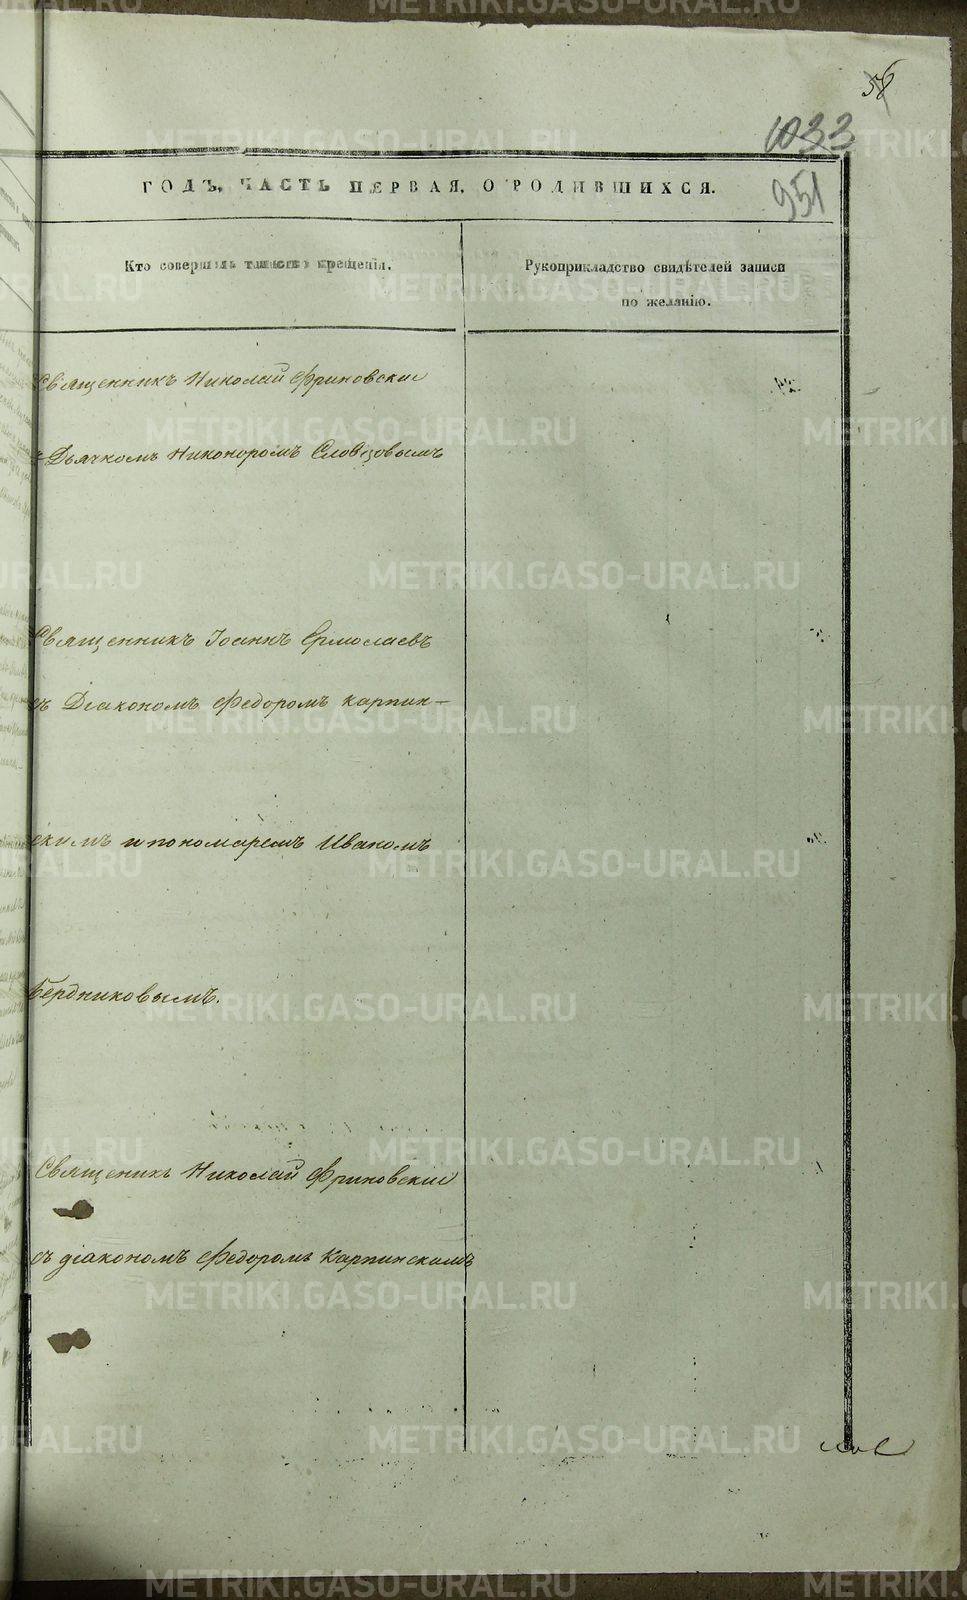 58
1033
951
ГОДЪ, ЧАСТЬ ПЕРВАЯ, О РОДИВШИХСЯ.
Кто совершилъ таинство крещенія.
Рукоприкладство свидѣтелей записи
по желанію.
Священникъ Николай Фриновскій
съ Дьячкомъ Никоноромъ Словцовымъ
Священникъ Іоаннъ Ермолаевъ
съ Діакономъ Федоромъ Карпин-
скимъ и пономаремъ Иваномъ
Бердниковымъ.
Священикъ Николай Фриновскій
съ діакономъ Федоромъ Карпинскимъ
METRIKI.GASO-URAL.RU